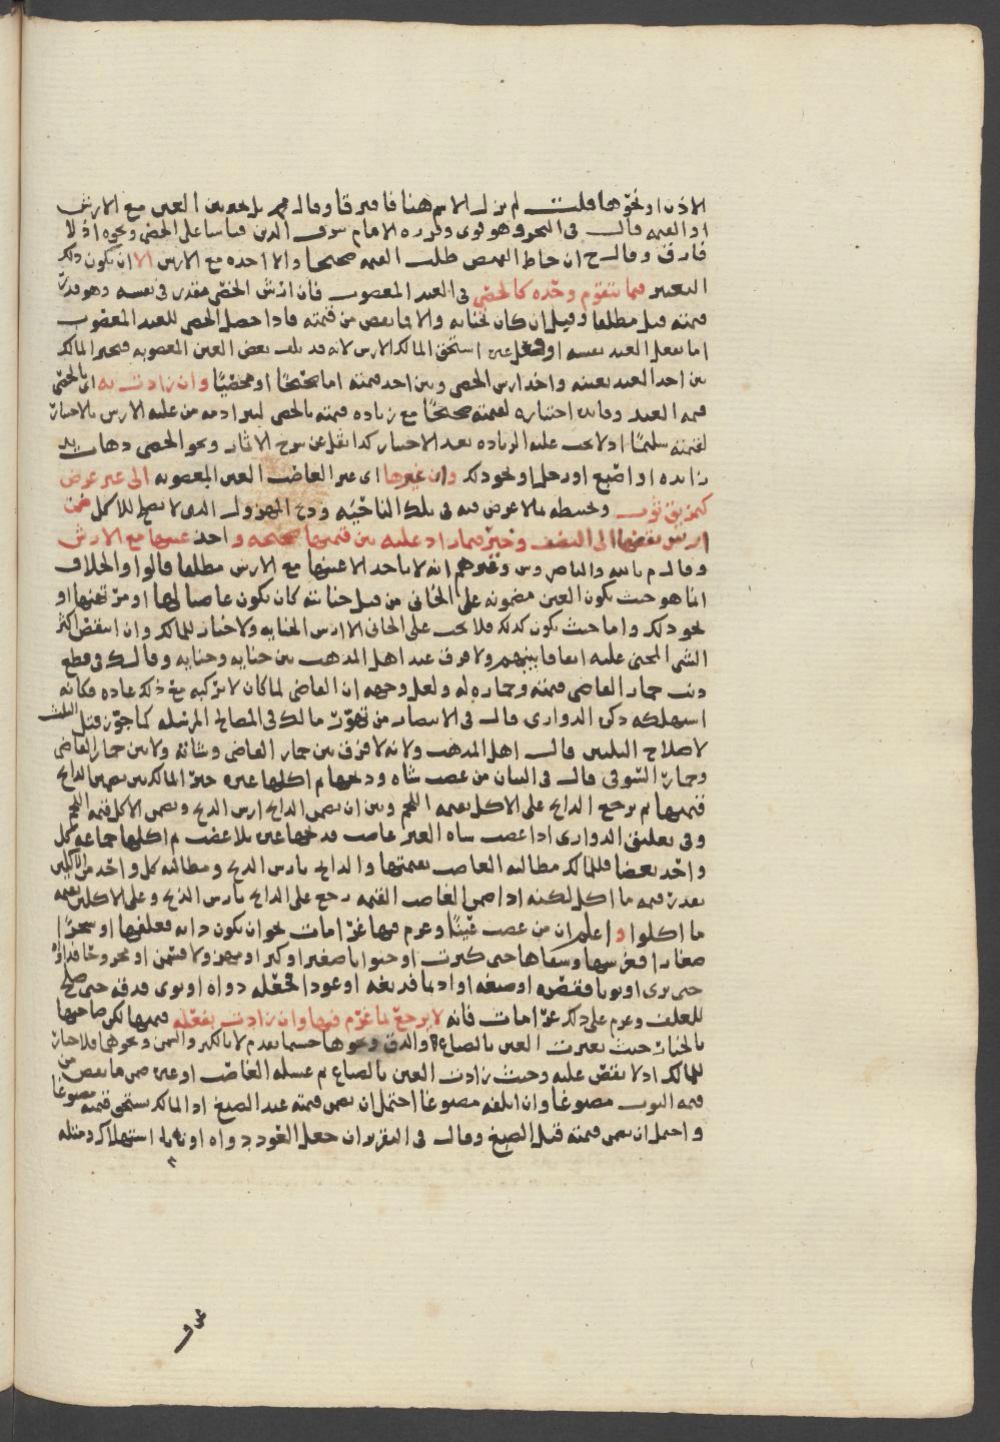 الاذن او نحوها قلت لم يزل الاسم هنا فافترقا وقال م بل يخير بين العين مع الارش
او القيمة قال في البحر وهو قوي وقرره الامام شرف الدين قياسا على الخصي ونحوه اذ لا
فارق وقال ح ان خاط القميص طلب القيمة صحيحا والا اخذه مع الارش الا ان يكون ذلك
التغيير مما يتقوم وحده كالخصي في العبد المغصوب فان ارش الخصي مقدر في نفسه وهو قدر
قيمته قيل مطلقا وقيل ان كان بجناية والا فما نقص من قيمته فاذا حصل الخصي للعبد المغصوب
اما بفعل العبد نفسه او فعل غيره استحق المالك الارش لانه قد تلف بعض العين المغصوبة فيخير المالك
بين اخذ العبد بعينه واخذ ارش الخصي وبين اخذ قيمته اما صحيحا او مخصيا وان زادت به اي بالخصي
قيمة العبد وفائدة اختياره لقيمته صحيحا مع زيادة قيمته بالخصي
لقيمته سليما اذ لا يجب عليه الزيادة بعد الاختيار كذا نقل عن شرح الاثمار ونحو الخصي ذهاب يد
زائدة او اصبع او رجل او نحو ذلك وان غيرها اي غير الغاصب العين المغصوبة الى غير غرض
كتمزيق ثوب وتخيطه بما لا غرض فيه في تلك الناحية وذبح المهزول الذي لا يصلح للاكل ضمن
ارش نقصها الى النصف وخير فيما زاد عليه بين قيمتها صحيحة واخذ عينها مع الارش
وقال م بالله والناصر وش وغيرهم انه لا ياخذ الا عينها مع الارش مطلقا قالوا والخلاف
انما هو حيث تكون العين مضمونة على الجاني من قبل جنايته كان يكون غاصبا لها او مرتهنها او
نحو ذلك واما حيث يكون كذلك فلا يجب على الجاني الا ارش الجناية ولا خيار للمالك وان انتقض اكثر
الشي المجني عليه اتفاقا بينهم ولا فرق عند اهل المذهب بين جناية وجناية وقال ك في قطع
ذنب حمار القاضي قيمته وحماره له ولعل وجهه ان القاضي لما كان لا يركبه مع ذلك عادة فكانه
استهلكه ذكره الدواري قال في الانتصار من تهور مالك في المصالح المرسلة كما جوز قتل الثلث
لاصلاح الثلثين قال اهل المذهب ولانه لا فرق بين حمار القاضي وشاته ولا بين حمار القاضي
وحمار الشوقي قال في البيان من غصب شاة وذبحها ثم اكلها غيره خير المالك بين تضمين الذابح
قيمتها ثم يرجع الذابح على الاكل بقيمة اللحم وبين ان يضمن الذابح ارش الذبح ويضمن الاكل قيمة اللحم
وفي تعليق الدواري اذا غصب شاة الغير غاصب فذبحها غيره بلا غصب ثم اكلها جماعة كل
واحد بعضا فللمالك مطالبة الغاصب بقيمتها والذابح بارش الذبح ومطالبة كل واحد من الاكلين
بقدر قيمة ما اكل لكنه اذا ضمن الغاصب القيمة رجع على الذابح بارش الذبح وعلى الاكلين بقيمة
ما اكلوا واعلم ان من غصب عينا وغرم فيها غرامات نحو ان يكون دابة فعلفها او شجرا
صغارا فغرسها وسقاها حتى كبرت او حيوانا صغيرا وكبر او مهزولا فسمن او مجروحا فداواه
حتى بري او ثوبا فقصره او صبغه او اديما فدبغه او عودا فجعله دواة او نوى فدقه حتى صلح
للعلف وغرم على ذلك غرامات فانه لا يرجع بما غرم فيها وان زادت بفعله قيمتها لكن صاحبها
بالخيار حيث تغيرت العين بالصباغ والدق ونحوها حسبما تقدم لا بالكبر والسمن ونحوهما فلا خيار
للمالك اذ لا نقص عليه وحيث زادت العين بالصباغ ثم غسله الغاصب او غيره ضمن ما نقص من
قيمة الثوب مصبوغا وان اتلفه مصبوغا احتمل ان يضمن قيمته عند الصبغ اذ المالك يستحق قيمته مصبوغا
واحتمل ان يضمن قيمته قبل الصبغ وقال في التقرير ان جعل العود دواة او استهلاك ومثله